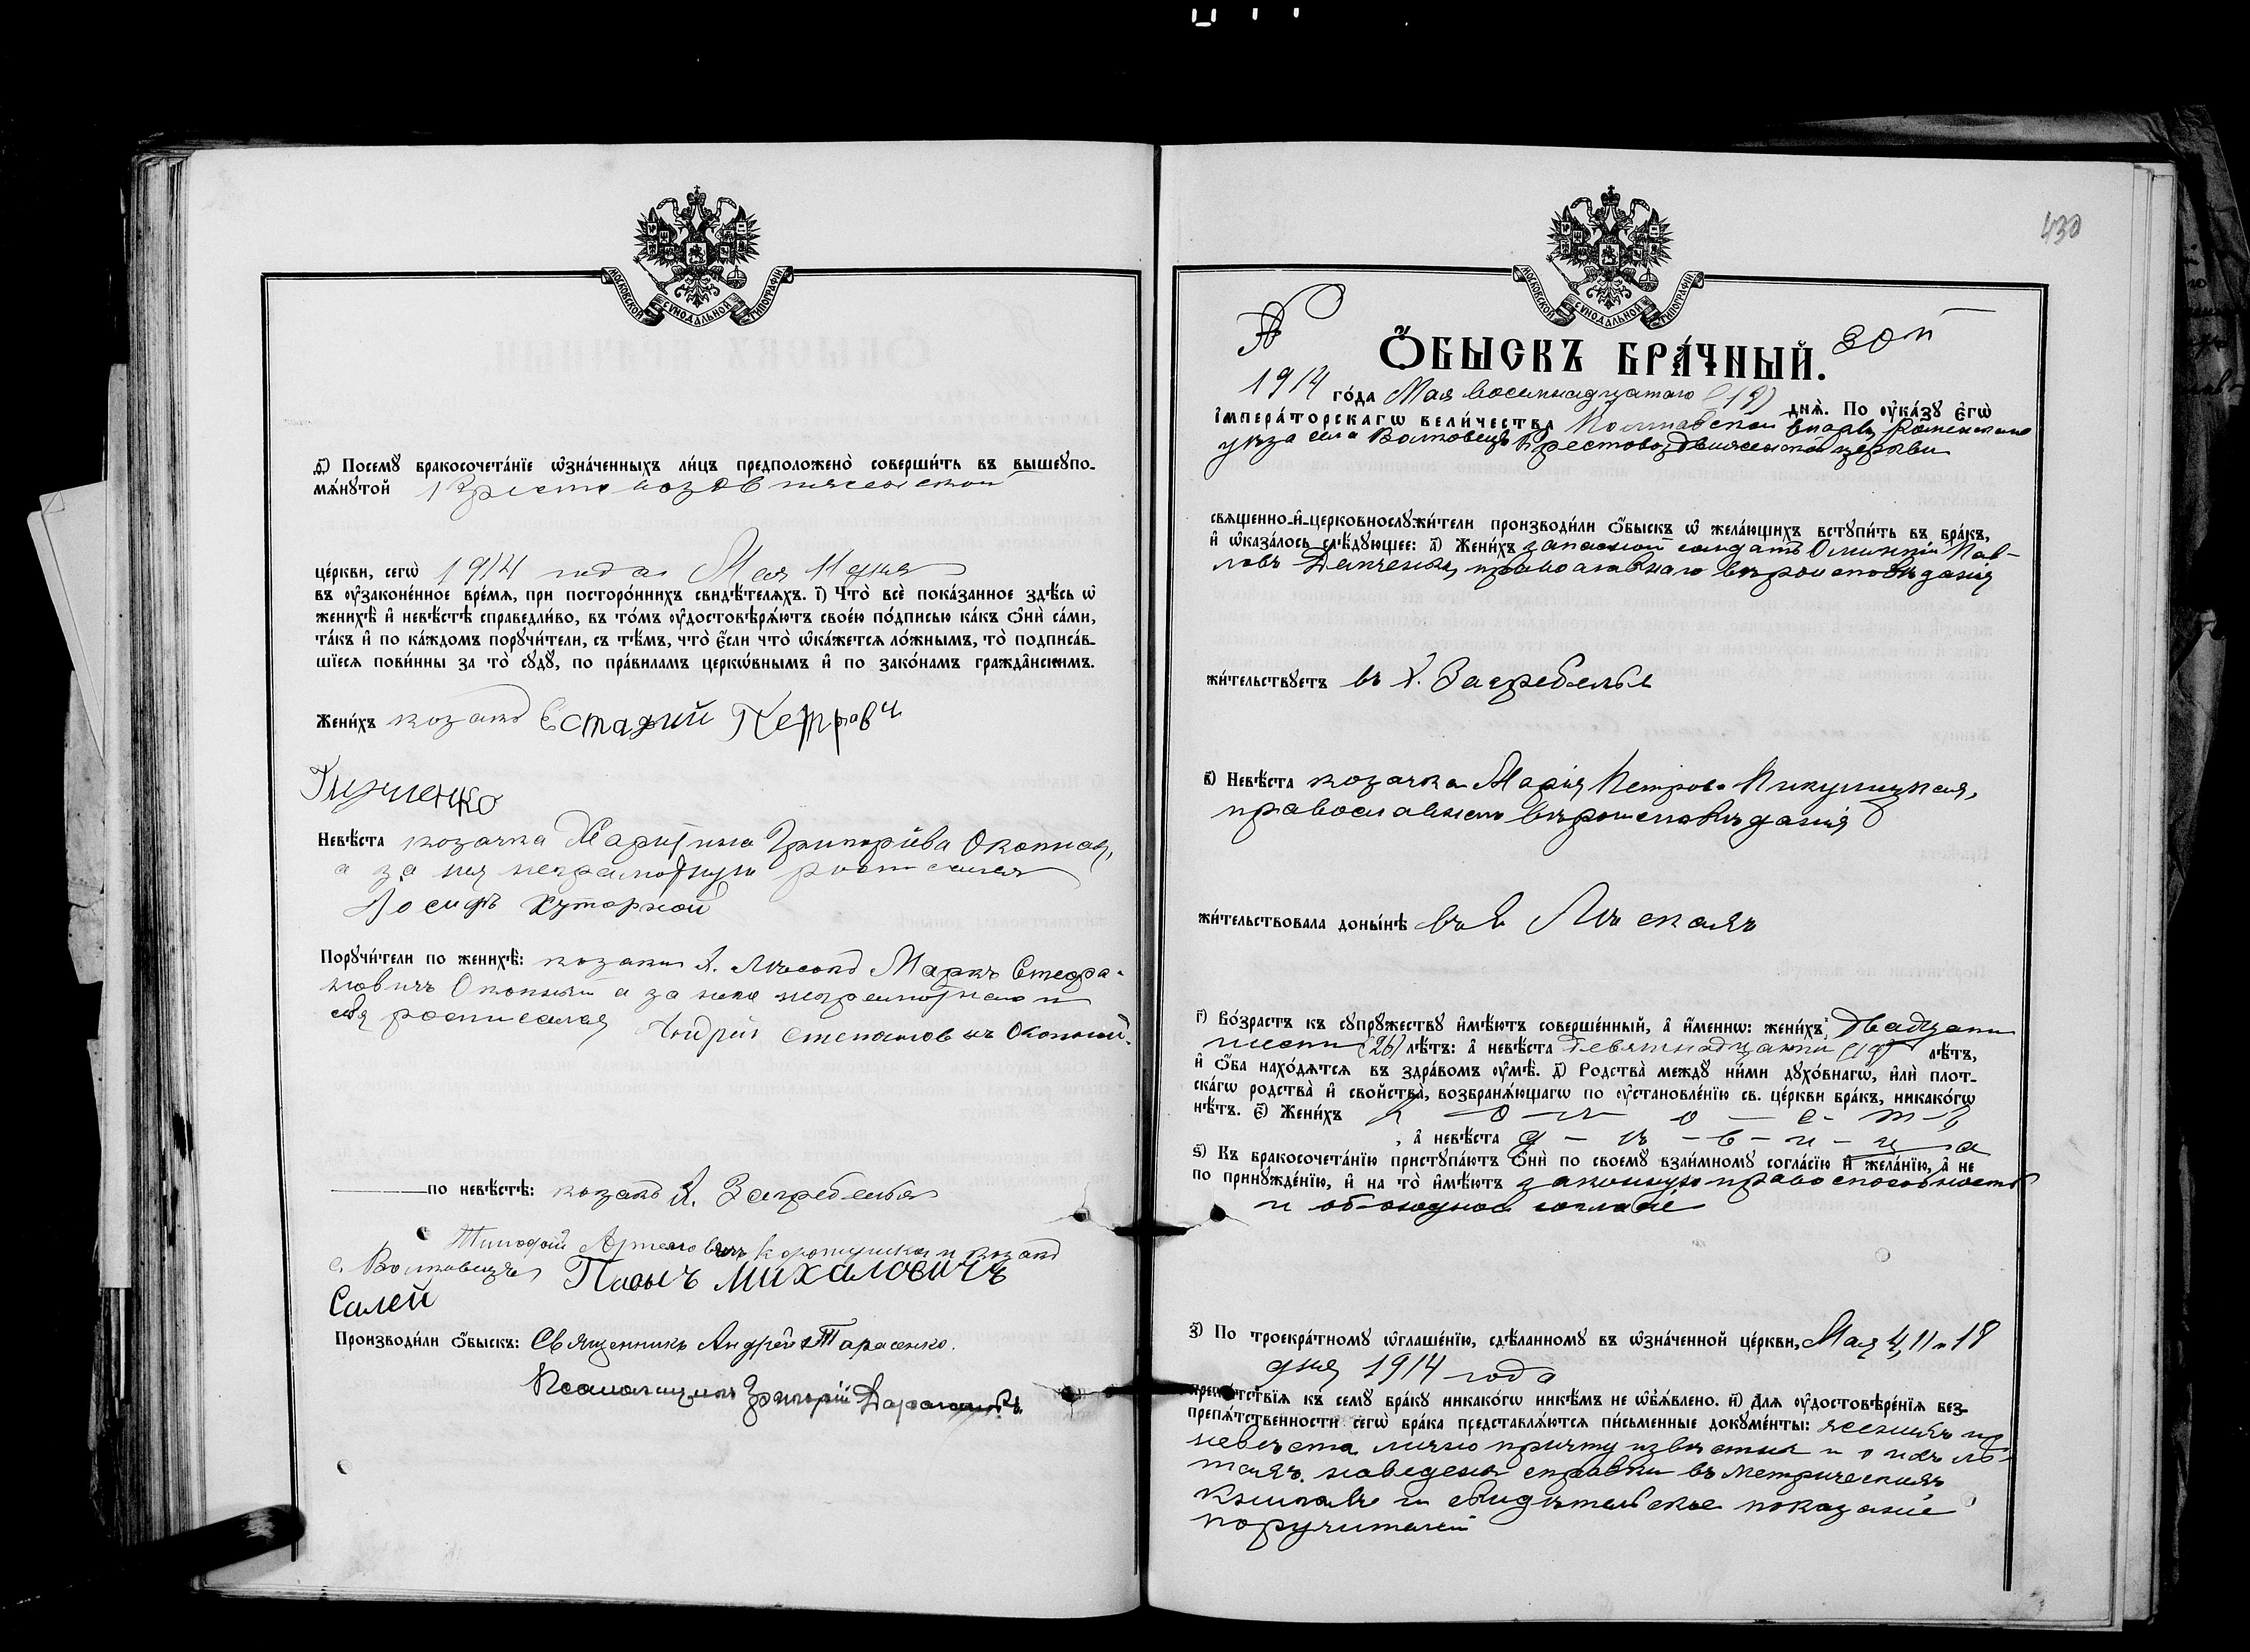 МОСКОВСКОЙ СѴНОДАЛЬНОЙ ТИПОГРАФІИ
ѳ҃) Посемꙋ̀ бракосочета́нїе ѡ҆зна́ченныхъ ли́цъ предположено̀ соверши́ть въ вышеꙋпо-
мѧ́нꙋтой Крестовоздвиженской
це́ркви, сегѡ̀ 1914 года Мая 11 дня
въ ᲂу҆законе́нное вре́мѧ, при посторо́ннихъ свидѣ́телѧхъ. і҃) Что̀ всѐ пока́занное здѣ́сь ѡ҆
женихѣ̀ и҆ невѣ́стѣ справедли́во, въ то́мъ ᲂу҆достовѣрѧ́ютъ свое́ю по́дписью ка́къ ѻ҆нѝ са́ми,
та́къ и҆ по ка́ждомъ порꙋчи́тели, съ тѣ́мъ, что̀ є҆́сли что̀ ѡ҆ка́жетсѧ ло́жнымъ, то̀ подписа́в-
шїесѧ пови́нны за то̀ сꙋдꙋ̀, по пра́виламъ церкѡ́внымъ и҆ по зако́намъ гражда́нскимъ.
Жени́хъ козакъ Естафий Петрови
Невѣ́ста козачка Харитина Григорiева Окопная,
а за нея неграмотную росписался
Иосифъ Хуторной
Порꙋчи́тели по женихѣ̀: козаки х. Лѣсокъ Маркъ Стефа-
новичъ Окопный а за него неграмотнаго и
себя росписался Андрей Степановичъ Окопний.
по невѣ́стѣ: козакъ х. Загребелья
Тимофей Артемовичъ и козакъ
с. Волковецъ Павыъ Михаловичъ
Салей
Производи́ли ѻ҆́быскъ: Священникъ Андрей Тарасенко.
Псаломщикъ Григорій
430
МОСКОВСКОЙ СѴНОДАЛЬНОЙ ТИПОГРАФІИ
30й
Ѻ҆́БЫСКЪ БРА́ЧНЫЙ.
1914 го́да Мая восемнадцатаго (18) днѧ̀. По ᲂу҆ка́зꙋ є҆гѡ̀
і҆мпера́торскагѡ вели́чества Полтавской епарх. Роменскаго
уѣзда села Волковецъ Крестовоздвиженской церкви
свѧще́нно-и҆-церковнослꙋжи́тели производи́ли ѻ҆́быскъ ѡ҆ жела́ющихъ встꙋпи́ть въ бра́къ,
и҆ ѡ҆каза́лось слѣ́дꙋющее: а҃) Жени́хъ запасной солдатъ Пав-
ловъ православнаго вѣроисповѣданія
жи́тельствꙋетъ въ х. Загребельѣ
в҃) Невѣ́ста козачка Марія Петрова Никулицкая,
православнаго вѣроисповѣданія
жи́тельствовала доны́нѣ въ х. Лѣскахъ
г҃) Во́зрастъ къ сꙋпрꙋ́жествꙋ и҆мѣ́ютъ соверше́нный, а҆ и҆́менно: жени́хъ двадцати
шести (26) лѣ́тъ: а҆ невѣ́ста девятнадцати (19) лѣ́тъ,
и҆ ѻ҆́ба нахо́дѧтсѧ въ здра́вомъ ᲂу҆мѣ̀. д҃) Родства̀ междꙋ ни́ми дꙋхо́внагѡ, и҆лѝ плот-
ска́гѡ родства̀ и҆ сво́йства, возбранѧ́ющагѡ по ᲂу҆становле́нїю св. це́ркви бра́къ, никако́гѡ
нѣ́тъ. є҃) Жени́хъ х - о - л - о - с - т - ъ
, а҆ невѣ́ста д - ѣ - в - и - ц - а
ѕ҃) Къ бракосочета́нїю пристꙋпа́ютъ ѻ҆нѝ по своемꙋ̀ взаи́мномꙋ согла́сїю и҆ жела́нїю, а҆ не
по принꙋжде́нїю, и҆ на то̀ и҆мѣ́ютъ законную правоспособность
и обоюдное согласіе
з҃) По троекра́тномꙋ ѡ҆глаше́нїю, сдѣ́ланномꙋ въ ѡ҆зна́ченной це́ркви, Мая 4, 11 и 18
дня 1914 года
препѧ́тствїѧ къ семꙋ̀ бра́кꙋ никако́гѡ никѣ́мъ не ѡ҆б̾ѧ́влено. и҃) Длѧ ᲂу҆достовѣре́нїѧ без-
препѧ́тственности сегѡ̀ бра́ка представлѧ́ютсѧ пи́сьменные докꙋме́нты: женихъ и
невѣста лично причту извѣстны и о ихъ лѣ-
тахъ наведены справки въ метрическихъ
книгахъ и свидѣтельское показаніе
поручителей